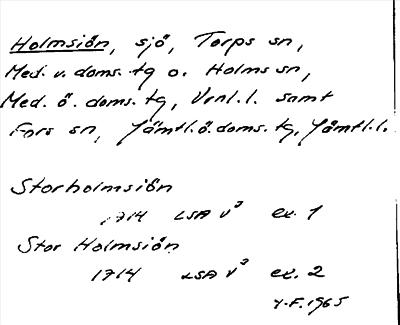 Holmsiön, sjö, Torps sn,
Med. v. doms. tg o. Holms sn,
Med. ö. doms. tg, Vnl.l. samt
Fors sn, Jämtl.ö.doms. tg, Jämtl.l.
Storholmsiön
1714 LSA V² ex. 1
Stor Holmsiön
1714 LSA V² ex. 2
Y.F. 1965